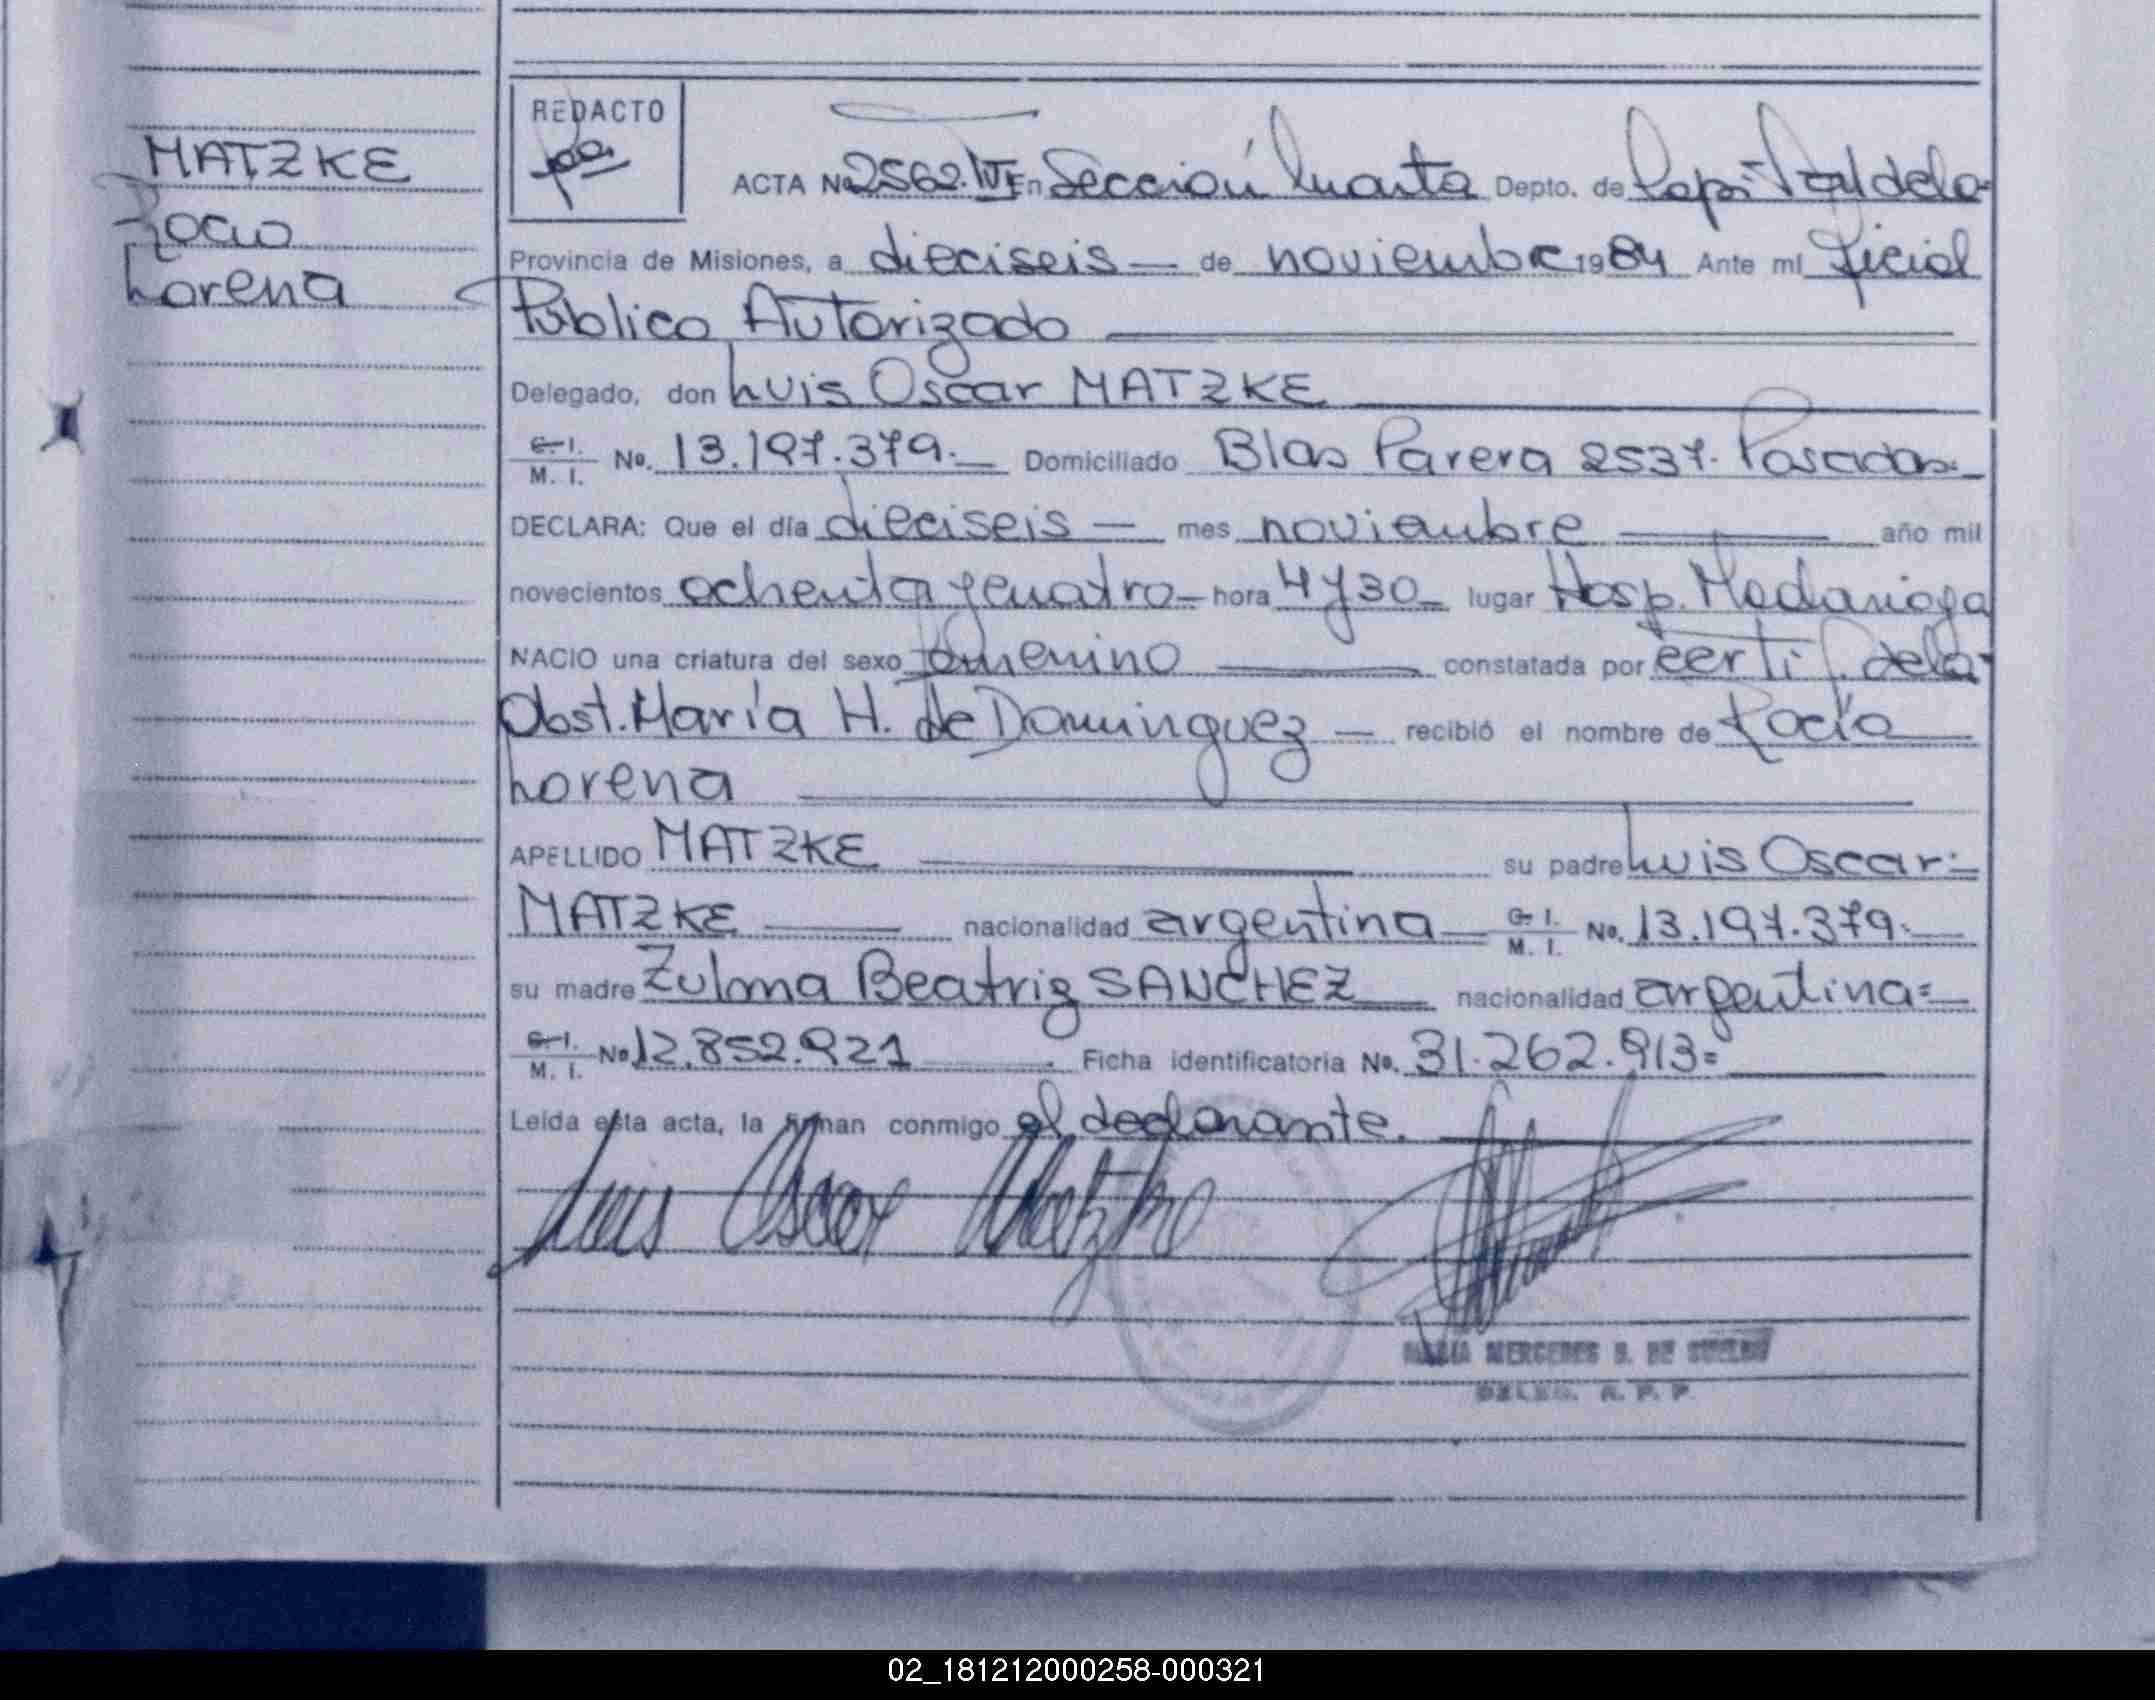 MATZKE
Rocio
Lorena
REDACTO
ACTA Nº 2562.IV En Sección Cuarta Depto. de Capital de la
Provincia de Misiones, a dieciseis — de noviembre 1984 Ante mí Oficial
Público Autorizado
Delegado, don Luis Oscar MATZKE
C. I.
M. I. No. 13.197.379. Domiciliado Blas Parera 2537. Posadas.
DECLARA: Que el día dieciseis — mes noviembre año mil
novecientos ochenta y cuatro — hora 4 y 30 lugar Hosp. Madariaga
NACIO una criatura del sexo femenino constatada por certif. de la
Obst. María H. de Dominguez — recibió el nombre de Rocío
Lorena
APELLIDO MATZKE su padre Luis Oscar
MATZKE nacionalidad argentina C. I.
M. I. No. 13.197.379.
su madre Zulma Beatriz SANCHEZ nacionalidad argentina
C. I.
M. I. No 12.852.921 Ficha identificatoria No. 31.262.913=
Leída esta acta, la firman conmigo el declarante.
Luis Oscar Matzke
MARIA MERCEDES S. DE
DELEG. R. P. P.
02_181212000258-000321